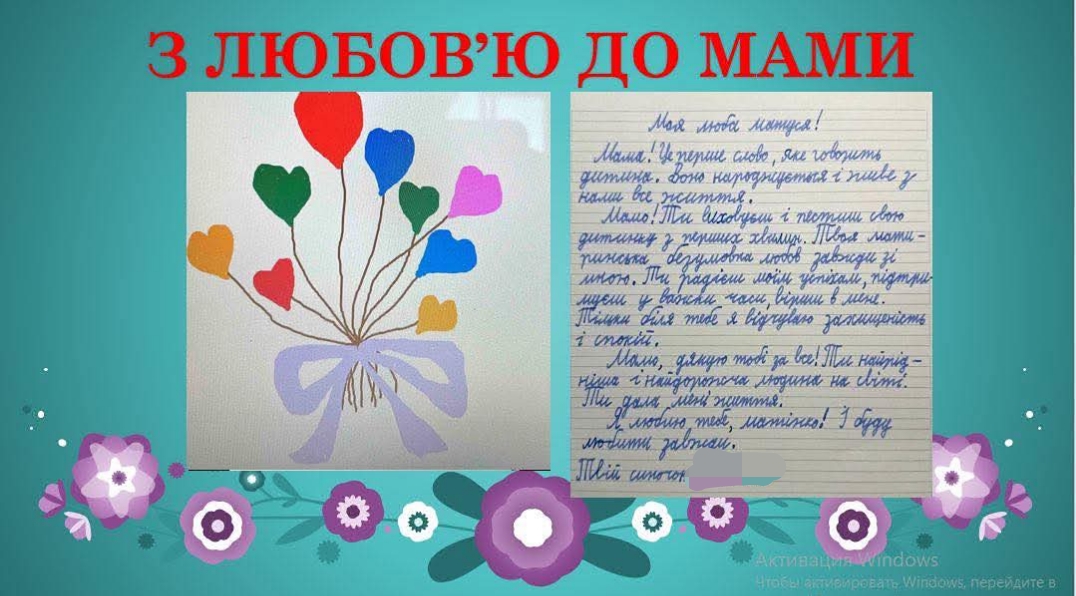 З ЛЮБОВ’Ю ДО МАМИ
Моя люба матуся!
Мама! Це перше слово, яке говорить
дитина. Воно народжується і живе з
нами все життя.
Мамо! Ти виховуєш і пестиш свою
дитинку з перших хвилин. Твоя мати-
ринська безумовна любов завжди зі
мною. Ти радієш моїм успіхам, підтри-
муєш у важкі часи, віриш в мене.
Тільки біля тебе я відчуваю захищеність
і спокій.
Мамо, дякую тобі за все! Ти найрід-
ніша і найдорожча людина на світі.
Ти дала мені життя.
Я люблю тебе, матінко! І буду
любити завжди.
Твій синочок
Активация Windows
Чтобы активировать Windows, перейдите в